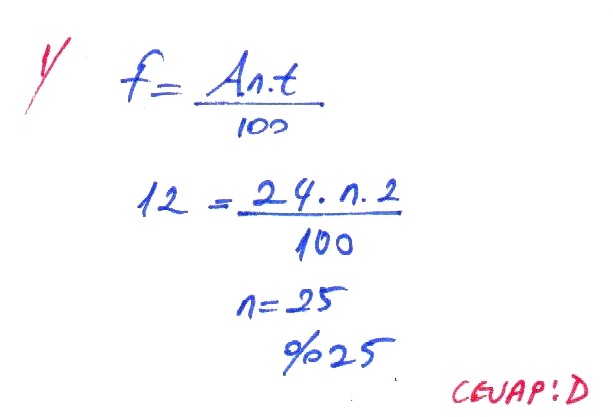 Y
f = An.t
100
12 = 24. n. 2
100
n = 25
%25
CEVAP: D